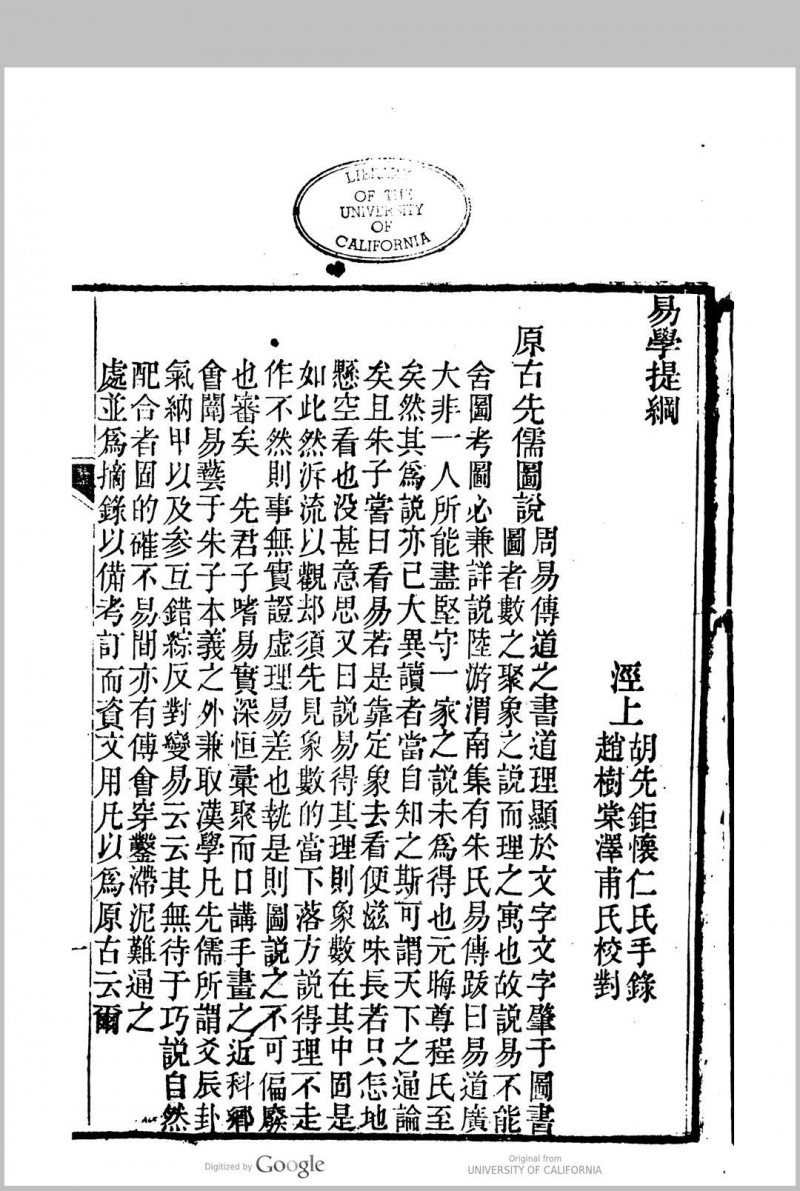 LIBRARY
OF THE
UNIVERSITY
OF
CALIFORNIA
易學提綱
涇上
胡先鉅懷仁氏手錄
趙樹棠澤甫氏校對
原古先儒圖說
周易傳道之書道理顯於文字文字肇于圖書
圖者數之聚象之說而理之寓也故說易不能
舍圖考圖必兼詳說陸游渭南集有朱氏易傳跋曰易道廣
大非一人所能盡堅守一家之說未為得也元晦尊程氏至
矣然其為說亦已大異讀者當自知之斯可謂天下之通論
矣且朱子嘗曰看易若是靠定象去看便滋味長若只怎地
懸空看也没甚意思又曰說易得其理則象數在其中固是
如此然泝流以觀却須先見象數的當下落方說得理不走
作不然則事無實證虛理易差也執是則圖說之不可偏廢
也審矣　先君子嗜易實深恒彙聚而口講手畫之近科鄉
會闈易藝于朱子本義之外兼取漢學凡先儒所謂爻辰卦
氣納甲以及參互錯綜反對變易云云其無待于巧說自然
配合者固的確不易間亦有傅會穿鑿滯泥難通之
處並為摘錄以備考訂而資文用凡以為原古云爾
一
Digitized by Google
Original from
UNIVERSITY OF CALIFORNIA